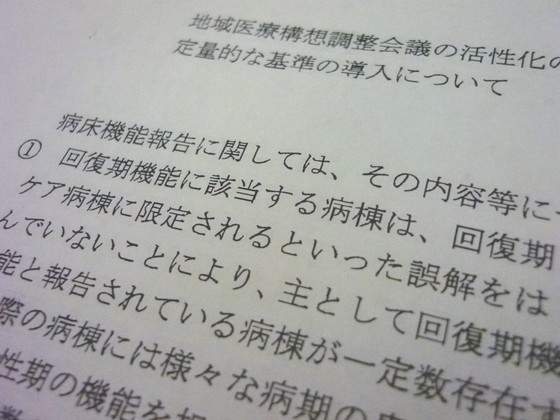 地域医療構想調整会議の活性化の
定量的な基準の導入について
病床機能報告に関しては、その内容等に
① 回復期機能に該当する病棟は、回復期
ケア病棟に限定されるといった誤解をは
んでいないことにより、主として回復期機
能と報告されている病棟が一定数存在す
際の病棟には様々な病期の患
性期の機能を